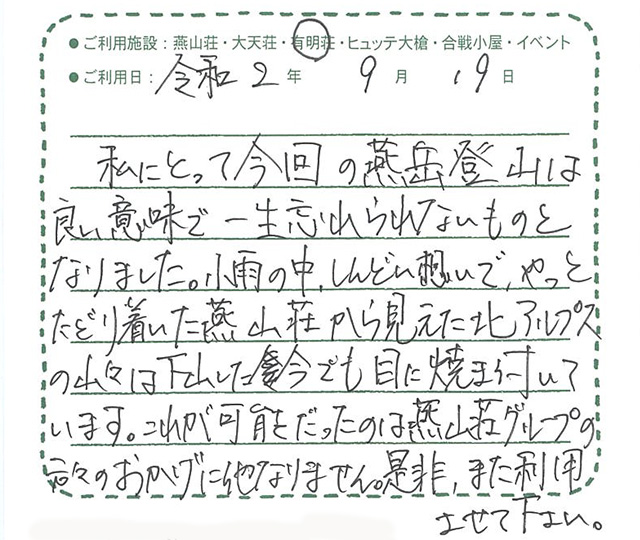 ●ご利用施設：燕山荘・大天荘・有明荘・ヒュッテ大槍・合戦小屋・イベント
●ご利用日：令和2年9月19日
私にとって今回の燕岳登山は
良い意味で一生忘れられないものと
なりました。小雨の中、しんどい想いで、やっと
たどり着いた燕山荘から見えた北アルプス
の山々は下山した今でも目に焼き付いて
います。これが可能だったのは燕山荘グループの
方々のおかげに他なりません。是非、また利用
させて下さい。